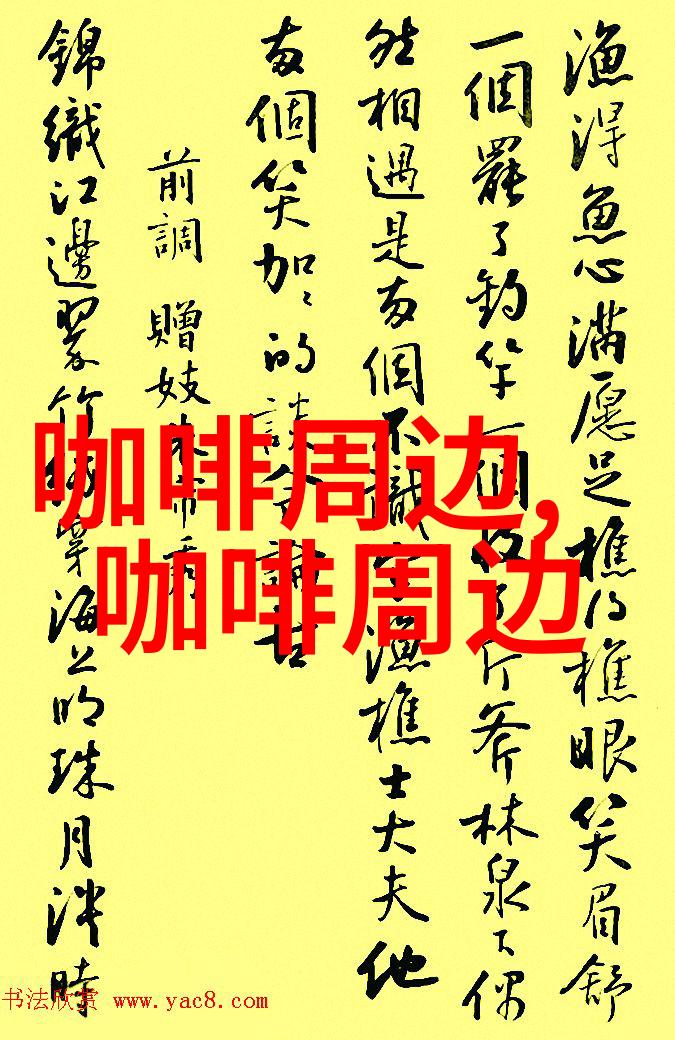 漁得魚心滿愿足樵得樵眼笑眉舒
一個罷了釣竿一個收了斤斧林泉下偶
然相遇是两個不識字漁樵士大夫他
两個笑加〻的談今論古
前調 贈妓朱帘秀
錦織江邊翠竹絨穿海上明珠月淡時
咖啡周边,
咖啡周边
书法欣赏 www.yac8.com